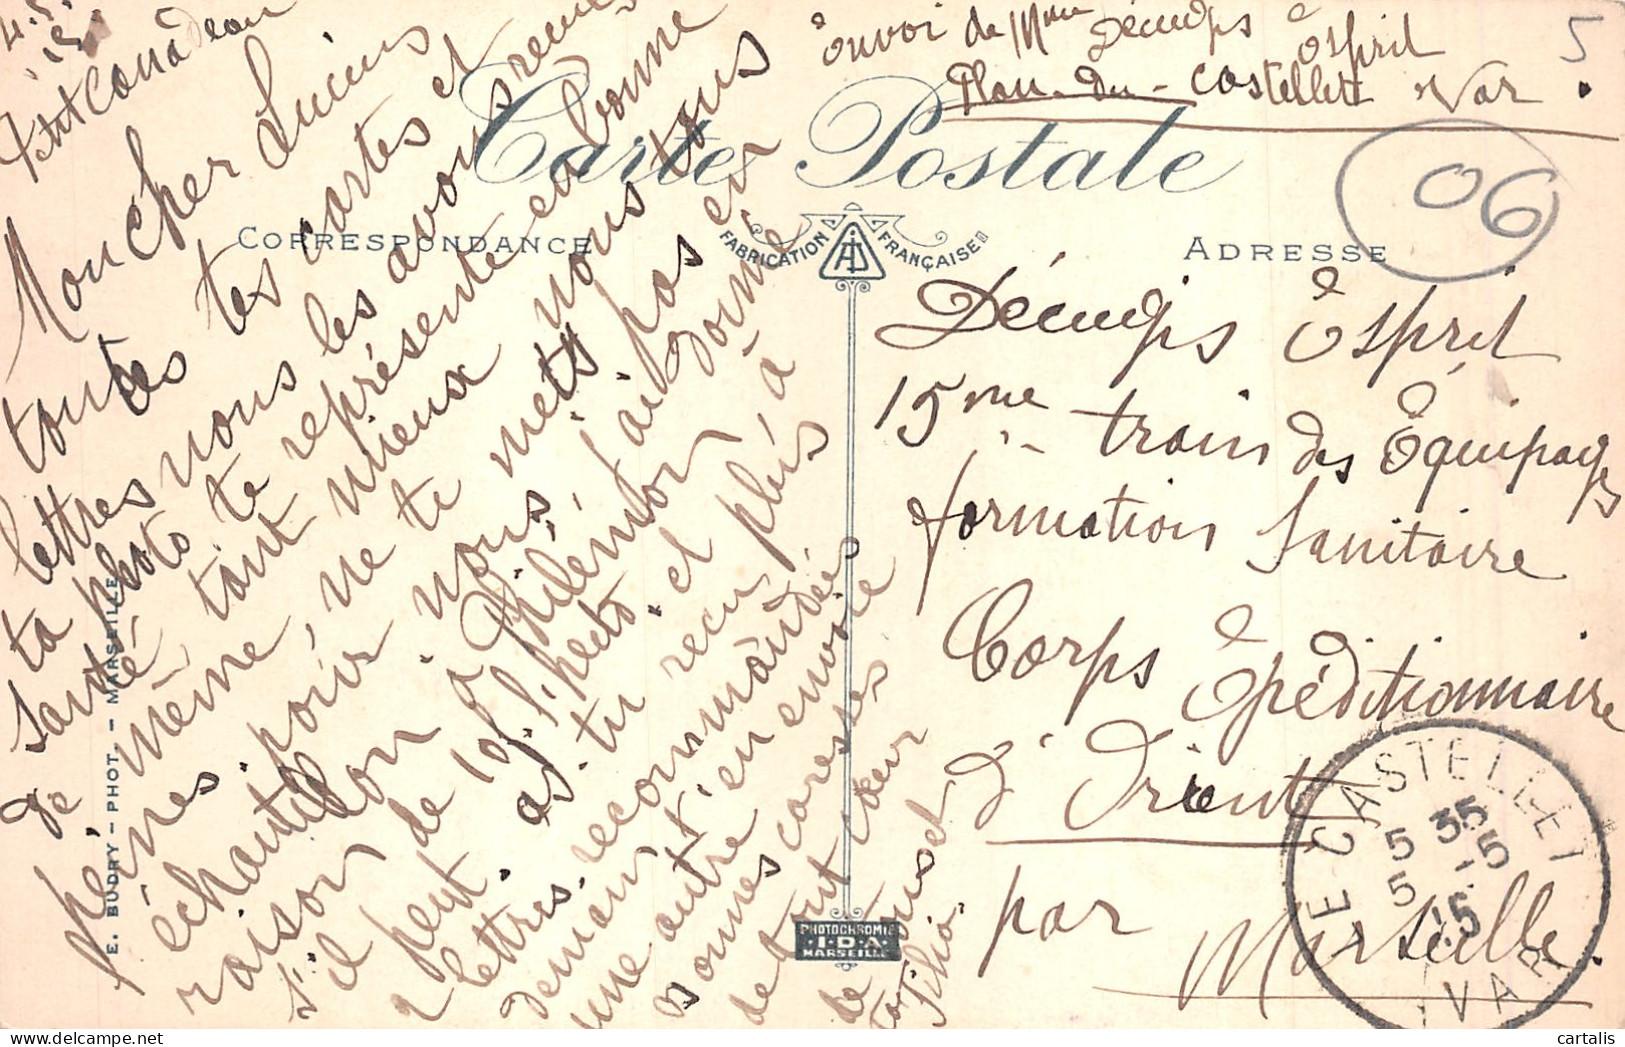 envoi de Mme Décugis Esprit
Plan du Castellet Var.
5
Carte Postale
06
CORRESPONDANCE
FABRICATION FRANÇAISE
ADRESSE
4.5.15
Mon cher Lucius
toutes tes cartes et
lettres nous les avons reçues
ta photo te représente en bonne
santé tant mieux nous tous
de même, ne te mets pas en
peines, pour nous, j'ai donné
échantillon à Philémon à
raison de 10f l'hecto et plus
s'il peut. as-tu reçu
2 lettres recommandées
demain une autre en envoie
bonnes caresses
de tout cœur
de nous
ton
Décugis Esprit
15me train des Équipages
formation Sanitaire
Corps Expéditionnaire
d'Orient
par
Marseille.
LE CASTELLET
5 35
5 -5
15
VAR
PHOTOCHROMIE
I.D.A
MARSEILLE
E. BUDRY - PHOT. - MARSEILLE
cartalis